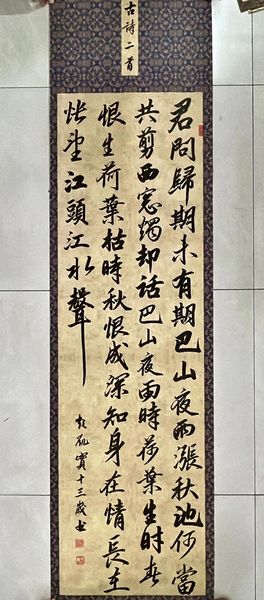 古詩二首
君問歸期未有期巴山夜雨漲秋池何當
共剪西窓燭却話巴山夜雨時荷葉生時春
恨生荷葉枯時秋恨成深知身在情長在
悵望江頭江水聲
寶十三歲書